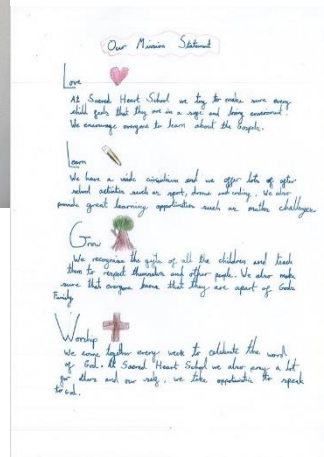 Our Mission Statement
Love
At Sacred Heart School we try to make sure every
child feels that they are in a safe and loving enviroment.
We encourage everyone to learn about the Gospels.
Learn
We have a wide circulum and we offer lots of after
school activities such as sport, drama and coding. We also
provide great learning opportunities such as maths challenges.
Grow
We recognise the gifts of all the children and teach
them to respect themselves and other people. We also make
sure that everyone knows that they are apart of Gods
Family
Worship
We come together every week to celebrate the word
of God. At Sacred Heart School we also pray a lot
for others and our we take opportunities to speak
to God.